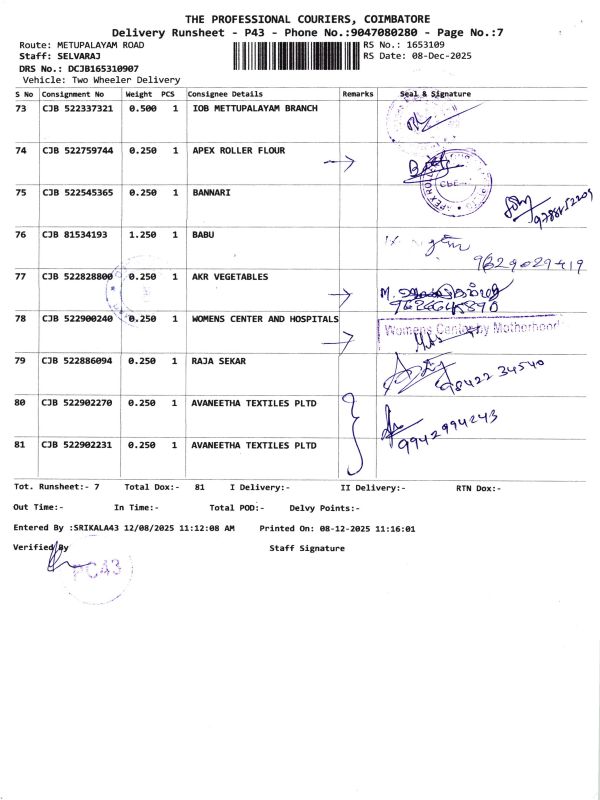 THE PROFESSIONAL COURIERS, COIMBATORE
Delivery Runsheet - P43 - Phone No.:9047080280 - Page No.:7
Route: METUPALAYAM ROAD RS No.: 1653109
Staff: SELVARAJ RS Date: 08-Dec-2025
DRS No.: DCJB165310907
Vehicle: Two Wheeler Delivery
S No Consignment No Weight PCS Consignee Details Remarks Seal & Signature
73 CJB 522337321 0.500 1 IOB METTUPALAYAM BRANCH
74 CJB 522759744 0.250 1 APEX ROLLER FLOUR
75 CJB 522545365 0.250 1 BANNARI
76 CJB 81534193 1.250 1 BABU
9629029419
77 CJB 522828800 0.250 1 AKR VEGETABLES
78 CJB 522900240 0.250 1 WOMENS CENTER AND HOSPITALS
Womens Center by Motherhood
79 CJB 522886094 0.250 1 RAJA SEKAR
98422 34540
80 CJB 522902270 0.250 1 AVANEETHA TEXTILES PLTD
9942994243
81 CJB 522902231 0.250 1 AVANEETHA TEXTILES PLTD
Tot. Runsheet:- 7 Total Dox:- 81 I Delivery:- II Delivery:- RTN Dox:-
Out Time:- In Time:- Total POD:- Delvy Points:-
Entered By :SRIKALA43 12/08/2025 11:12:08 AM Printed On: 08-12-2025 11:16:01
Verified By Staff Signature
PC43